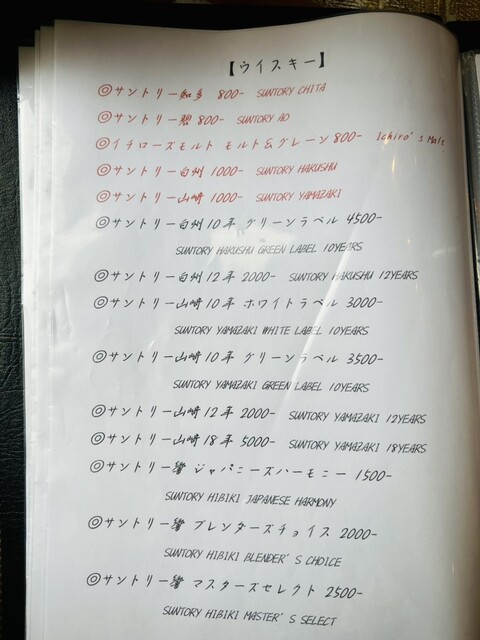 【ウイスキー】
◎サントリー知多 800- SUNTORY CHITA
◎サントリー碧 800- SUNTORY AO
◎イチローズモルト モルト&グレーン 800- Ichiro's Malt
◎サントリー白州 1000- SUNTORY HAKUSHU
◎サントリー山崎 1000- SUNTORY YAMAZAKI
◎サントリー白州10年 グリーンラベル 4500-
SUNTORY HAKUSHU GREEN LABEL 10YEARS
◎サントリー白州12年 2000- SUNTORY HAKUSHU 12YEARS
◎サントリー山崎10年 ホワイトラベル 3000-
SUNTORY YAMAZAKI WHITE LABEL 10YEARS
◎サントリー山崎10年 グリーンラベル 3500-
SUNTORY YAMAZAKI GREEN LABEL 10YEARS
◎サントリー山崎12年 2000- SUNTORY YAMAZAKI 12YEARS
◎サントリー山崎18年 5000- SUNTORY YAMAZAKI 18YEARS
◎サントリー響 ジャパニーズハーモニー 1500-
SUNTORY HIBIKI JAPANESE HARMONY
◎サントリー響 ブレンダーズチョイス 2000-
SUNTORY HIBIKI BLENDER'S CHOICE
◎サントリー響 マスターズセレクト 2500-
SUNTORY HIBIKI MASTER'S SELECT